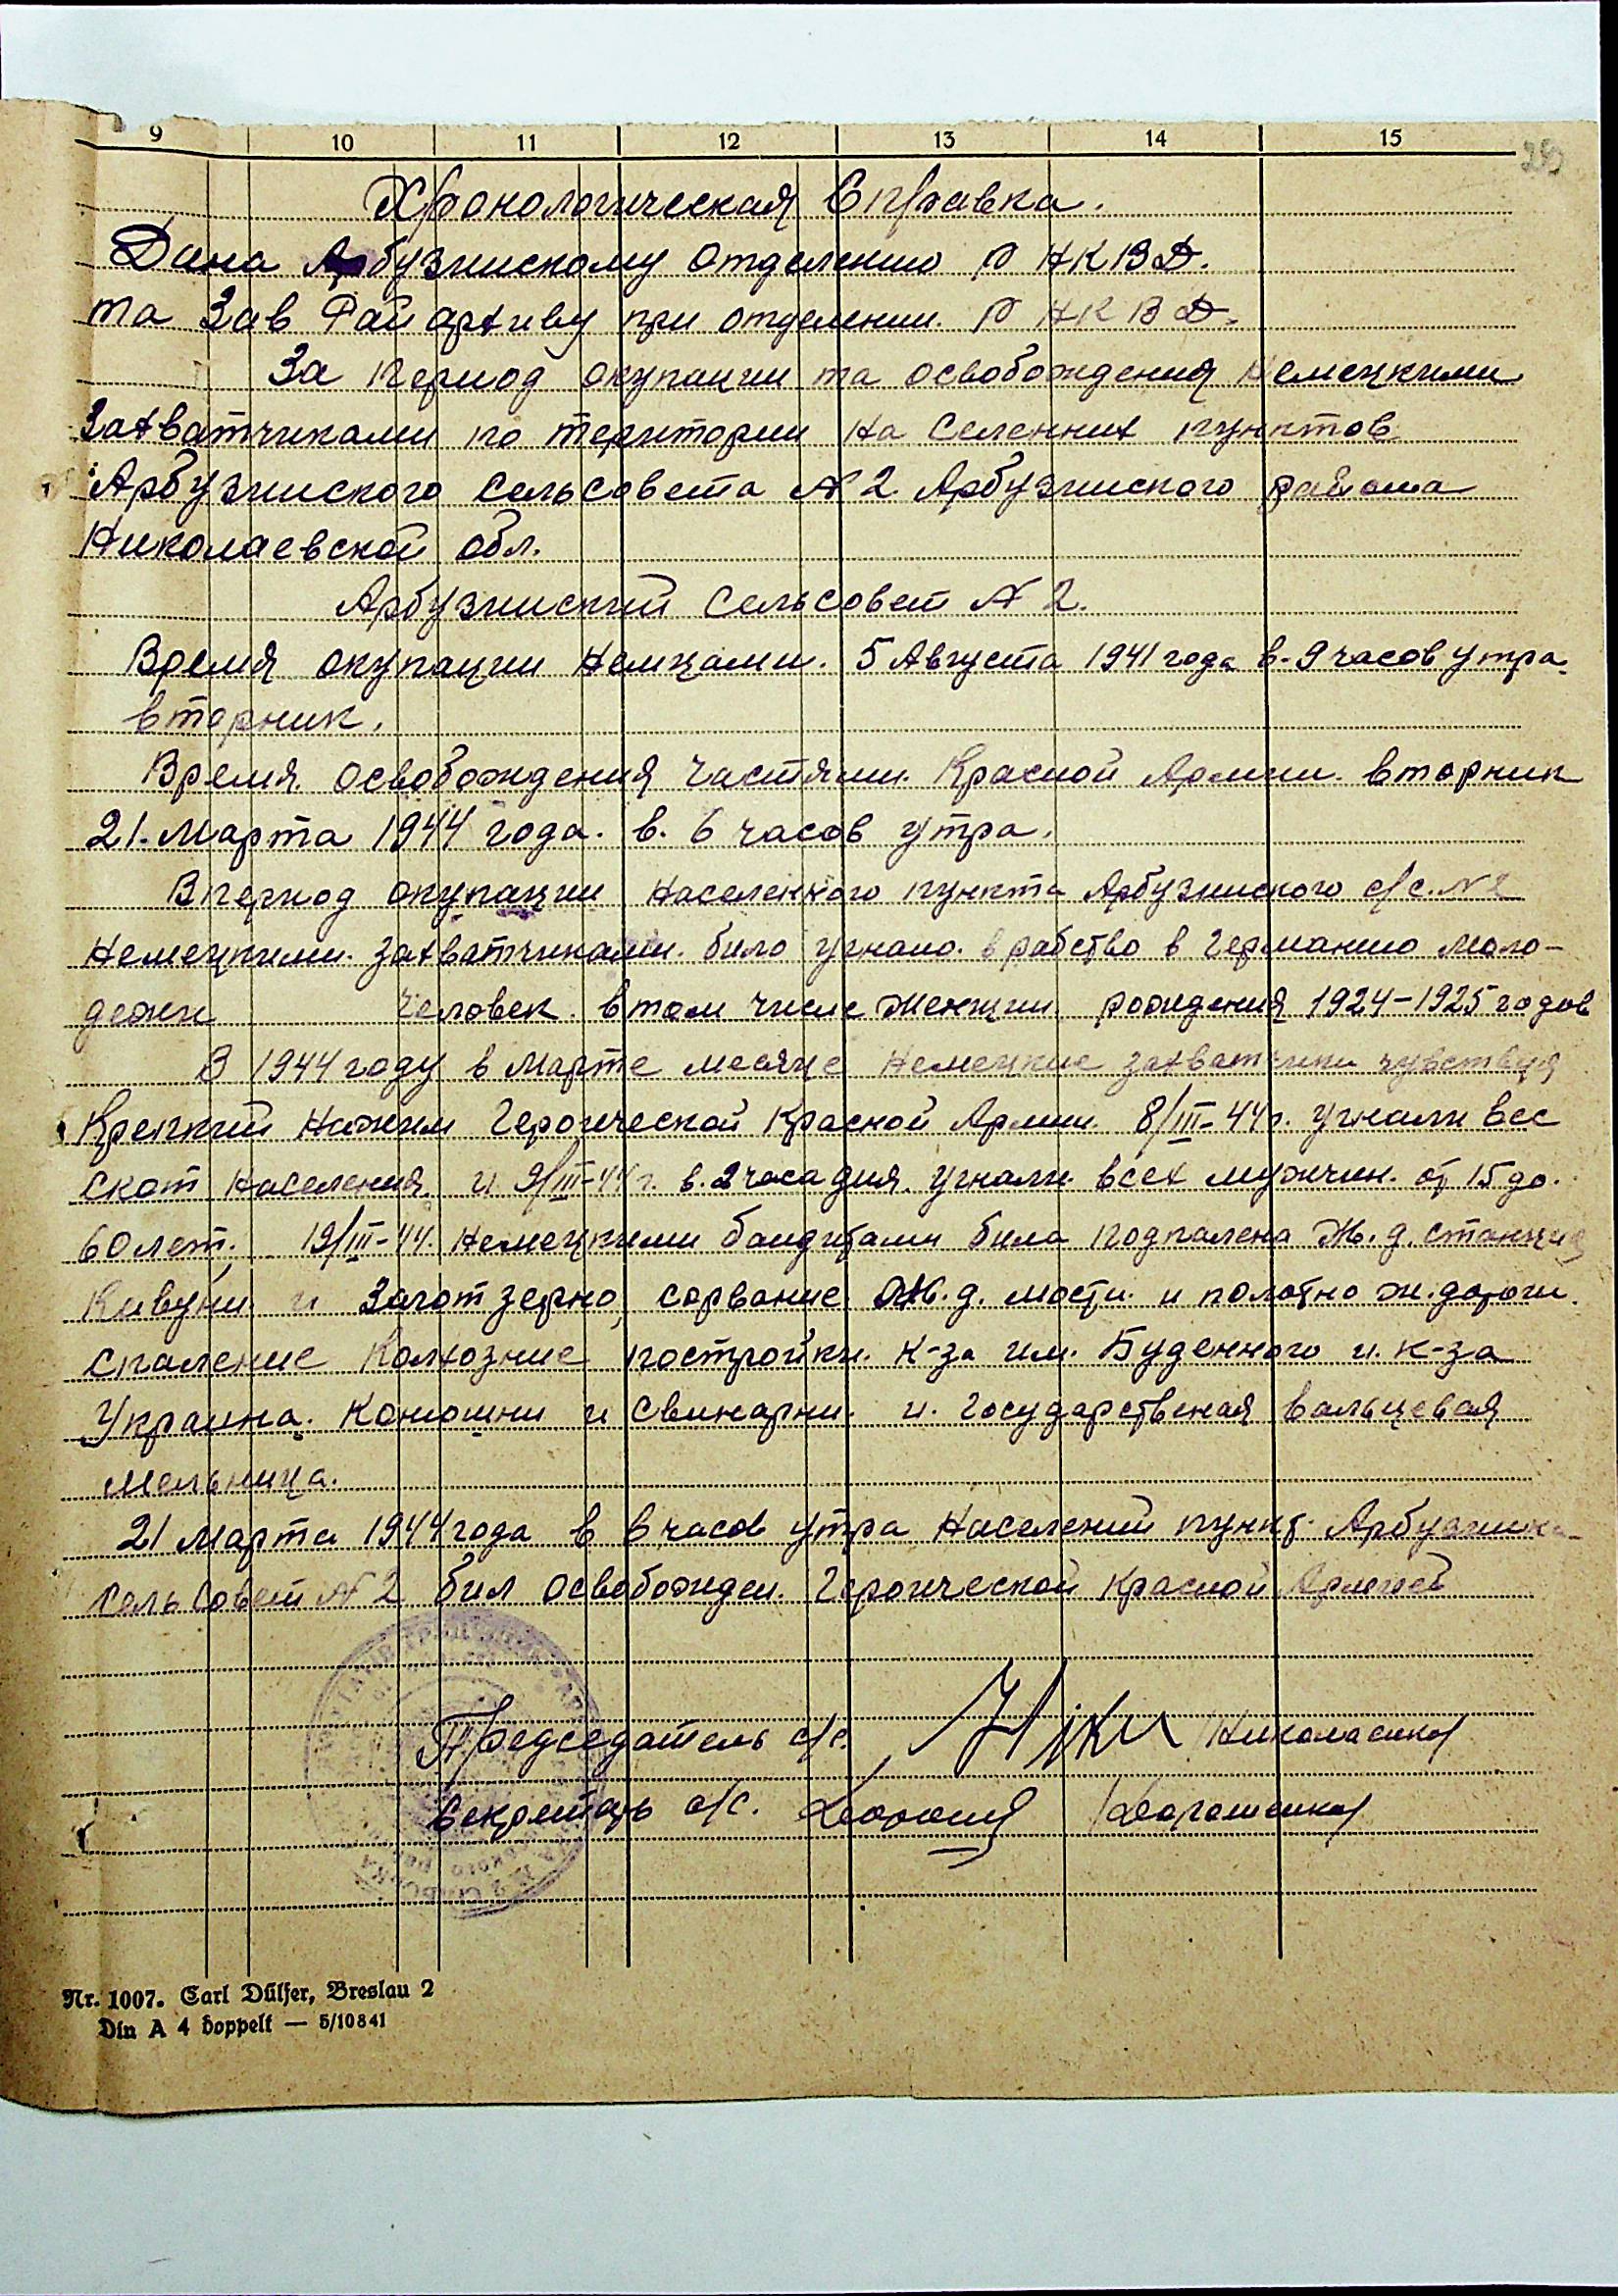 9 10 11 12 13 14 15
Хронологическая Справка.
Дана Арбузинскому отделению Р НКВД.
та Зав Рай архиву при отделении Р НКВД.
За период окупации та освобождения Немецкими
Захватчиками по територии На Селенних пунктов
Арбузинского Сельсовета №2 Арбузинского района
Николаевской обл.
Арбузинский Сельсовет №2.
Время окупации Немцами. 5 Августа 1941 года в-9 часов утра.
вторник.
Время освобождения частями Красной Армии. вторник
21. Марта 1944 года. в. 6 часов утра.
В период окупации Населенного пункта Арбузинского с/с. №2
Немецкими захватчиками. било угнано. в рабство в Германию моло-
дежи человек. в том числе женщин. рождения 1924-1925 годов
В 1944 году в Марте месяце Немецкие захватчики чувствуя
Крепкий Нажим Героической Красной Армии. 8/III-44 г. угнали весь
скот Населения. и 9/III-44 г. в. 2 часа дня. угнали. всех мужчин. от 15 до.
60 лет. 19/III-44. Немецкими бандитами била подпалена Ж.д. станция
Кавуни. и Заготзерно, сорвание Ж.д. мости. и полотно ж. дороги.
спаление Колхозние постройки. к-за им. Буденного и. к-за
Украина. Конюшни и свинарни. и. Государственая вальцевая
мельница.
21 Марта 1944 года в 6 часов утра Населений пункт. Арбузинка-
сельсовет №2 бил освобожден. Героической Красной Армией
Председатель с/с. Николаенко/
Секретарь с/с. /Дорошенко/
Nr. 1007. Carl Dülfer, Breslau 2
Din A 4 doppelt — 5/10841